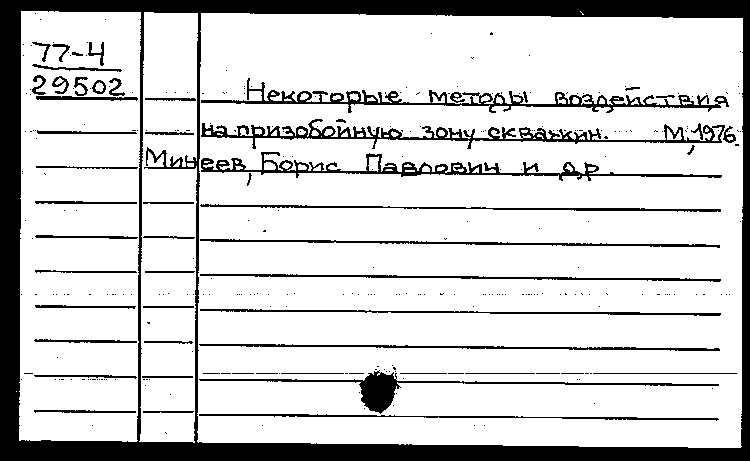 77-4
29502
Некоторые методы воздействия
на призобойную зону скважин. М, 1976.
Минеев, Борис Павлович и др.